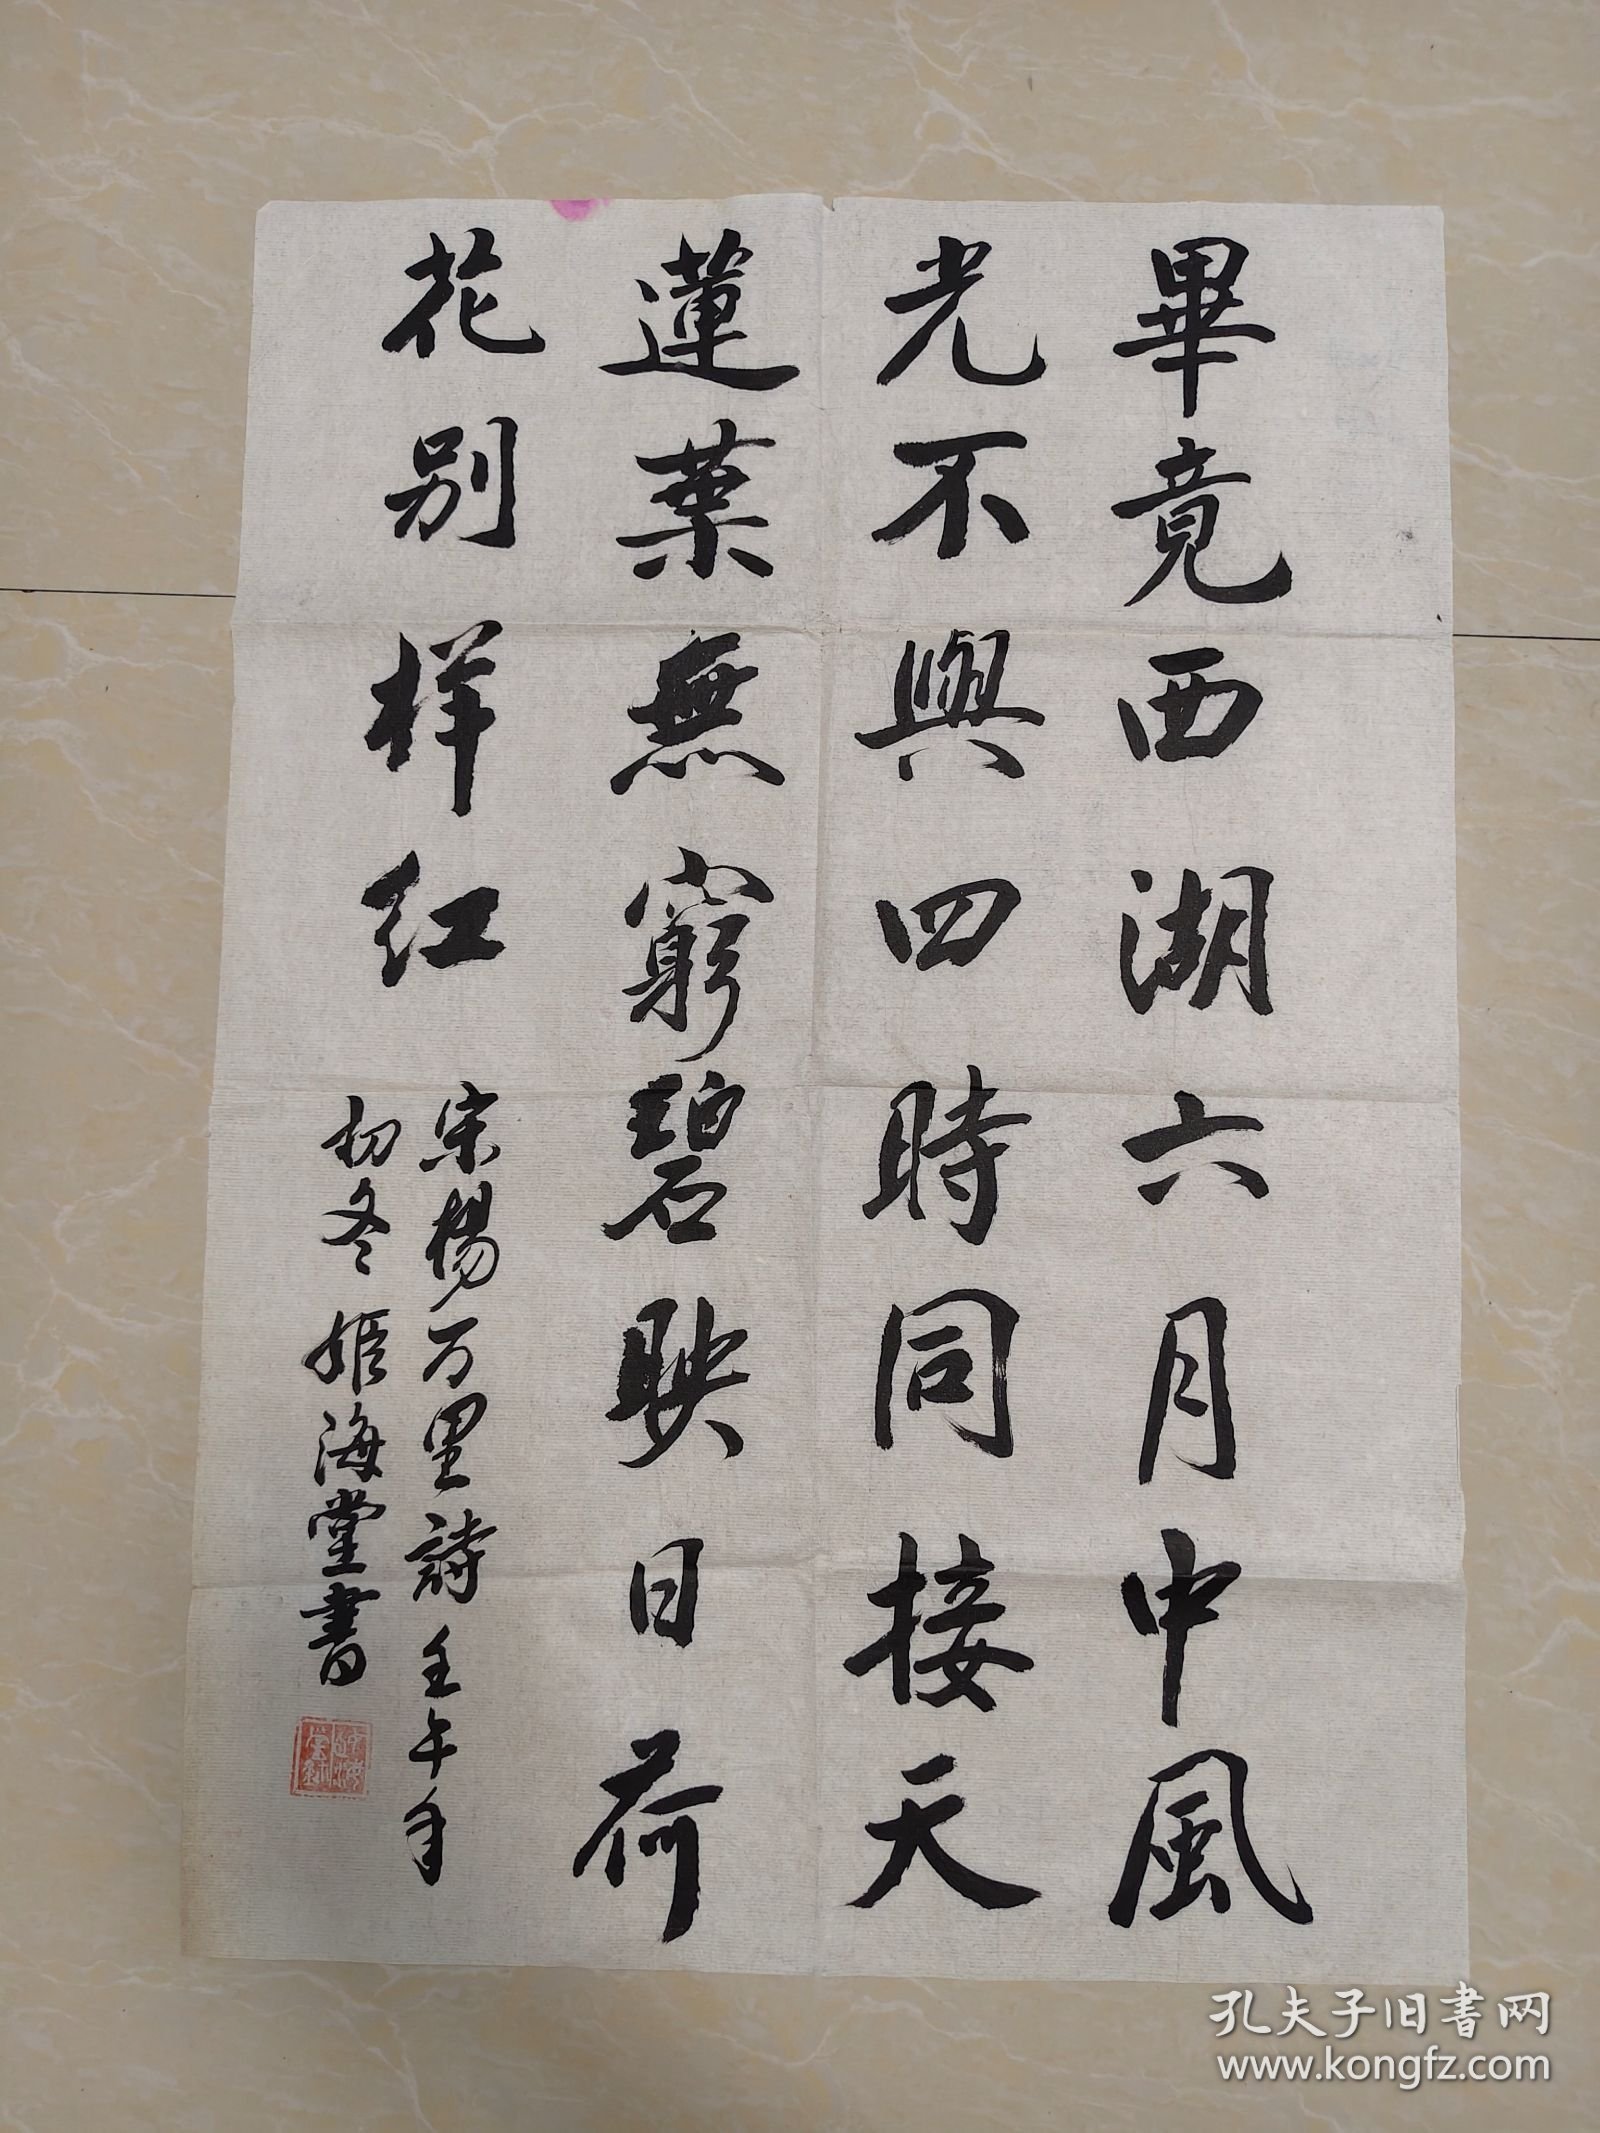 畢竟西湖六月中風
光不與四時同接天
蓮葉無窮碧映日荷
花别样红
宋楊万里詩壬午年
初冬姬海堂書
孔夫子旧书网
www.kongfz.com